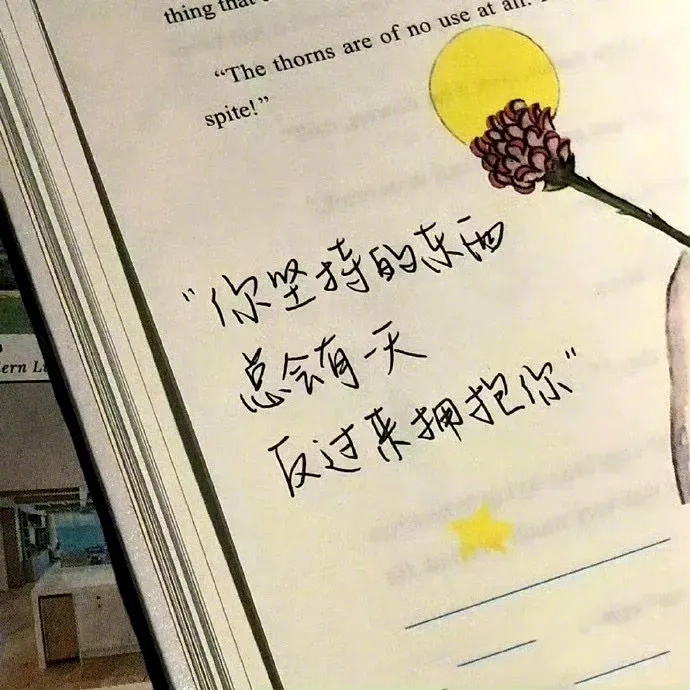 thing that
"The thorns are of no use at all.
spite!"
"你坚持的东西
总会有一天
反过来拥抱你"
ern Li